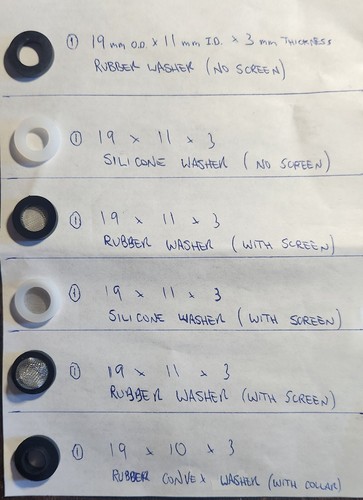 ① 19 mm O.D. x 11 mm I.D. x 3 mm THICKNESS
RUBBER WASHER (NO SCREEN)
① 19 x 11 x 3
SILICONE WASHER (NO SCREEN)
① 19 x 11 x 3
RUBBER WASHER (WITH SCREEN)
① 19 x 11 x 3
SILICONE WASHER (WITH SCREEN)
① 19 x 11 x 3
RUBBER WASHER (WITH SCREEN)
① 19 x 10 x 3
RUBBER CONVEX WASHER (WITH COLLAR)